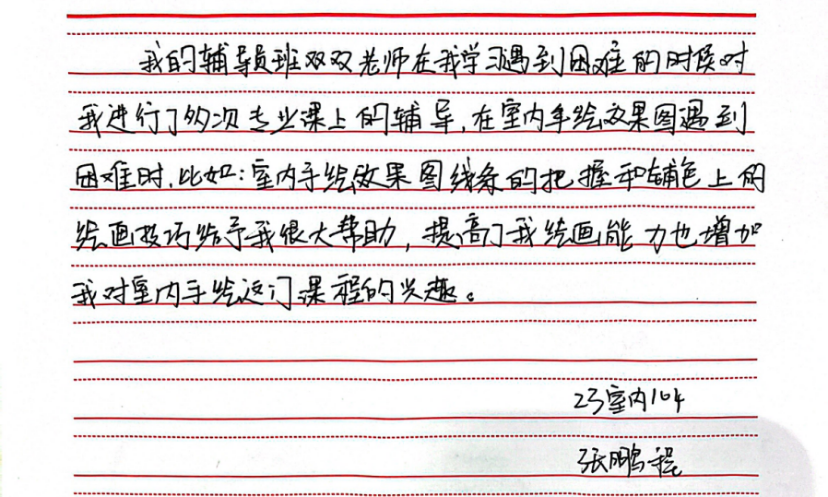 我的辅导员班双双老师在我学习遇到困难的时候对
我进行了多次专业课上的辅导,在室内手绘效果图遇到
困难时,比如:室内手绘效果图线条的把握和铺色上的
绘画技巧给予我很大帮助,提高了我绘画能力也增加
我对室内手绘这门课程的兴趣。
23室内104
张鹏程